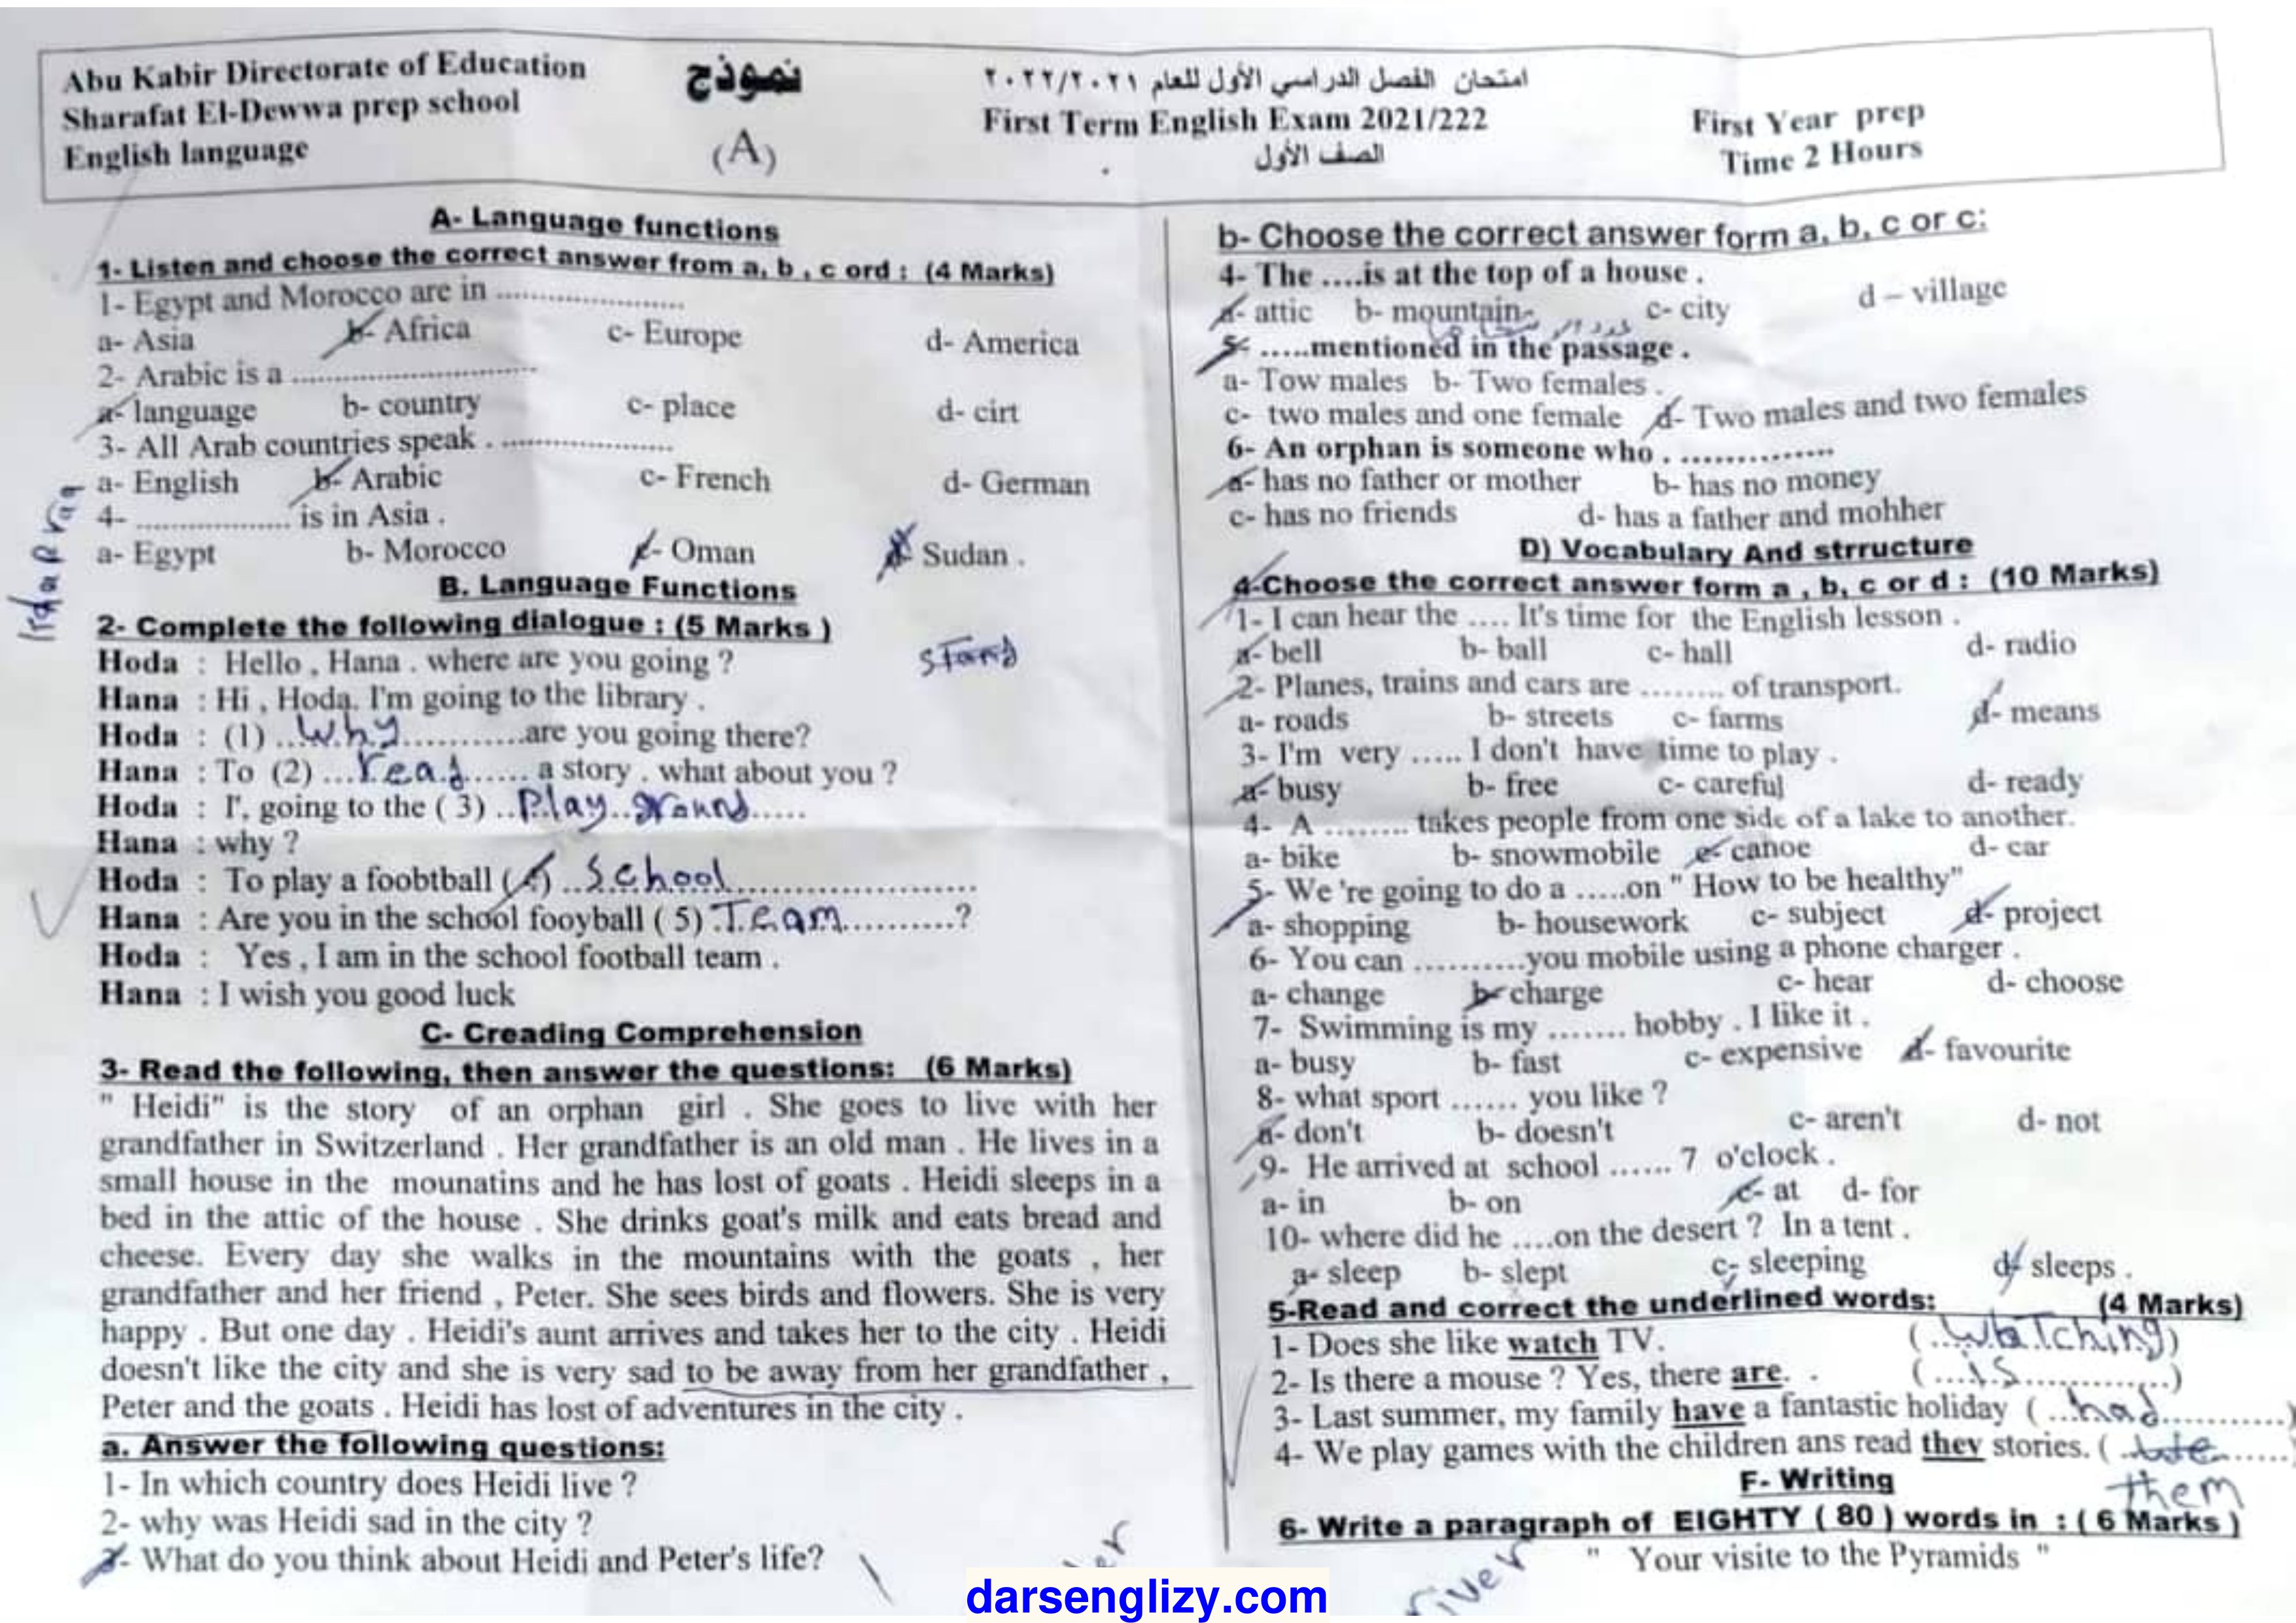 Abu Kabir Directorate of Education
Sharafat El-Dewwa prep school
English language
نموذج
(A)
امتحان الفصل الدراسي الأول للعام ٢٠٢٢/٢٠٢١
First Term English Exam 2021/222
الصف الأول
First Year prep
Time 2 Hours
A- Language functions
1- Listen and choose the correct answer from a, b , c ord : (4 Marks)
1- Egypt and Morocco are in ........................
a- Asia b- Africa c- Europe d- America
2- Arabic is a ................................
a- language b- country c- place d- cirt
3- All Arab countries speak . ......................
a- English b- Arabic c- French d- German
4- .................... is in Asia .
a- Egypt b- Morocco c- Oman d- Sudan .
B. Language Functions
2- Complete the following dialogue : (5 Marks )
stand
Hoda : Hello , Hana . where are you going ?
Hana : Hi , Hoda. I'm going to the library .
Hoda : (1) ...Why............are you going there?
Hana : To (2) ...read...... a story . what about you ?
Hoda : I', going to the ( 3) ..Play..ground.....
Hana : why ?
Hoda : To play a foobtball (4) ..School........................
Hana : Are you in the school fooyball ( 5) .Team..........?
Hoda : Yes , I am in the school football team .
Hana : I wish you good luck
C- Creading Comprehension
3- Read the following, then answer the questions: (6 Marks)
" Heidi" is the story of an orphan girl . She goes to live with her
grandfather in Switzerland . Her grandfather is an old man . He lives in a
small house in the mounatins and he has lost of goats . Heidi sleeps in a
bed in the attic of the house . She drinks goat's milk and eats bread and
cheese. Every day she walks in the mountains with the goats , her
grandfather and her friend , Peter. She sees birds and flowers. She is very
happy . But one day . Heidi's aunt arrives and takes her to the city . Heidi
doesn't like the city and she is very sad to be away from her grandfather ,
Peter and the goats . Heidi has lost of adventures in the city .
a. Answer the following questions:
1- In which country does Heidi live ?
2- why was Heidi sad in the city ?
3- What do you think about Heidi and Peter's life?
b- Choose the correct answer form a, b, c or c:
4- The ....is at the top of a house .
a- attic b- mountain c- city d – village
5- .....mentioned in the passage .
a- Tow males b- Two females .
c- two males and one female d- Two males and two females
6- An orphan is someone who . ..............
a- has no father or mother b- has no money
c- has no friends d- has a father and mohher
D) Vocabulary And strructure
4-Choose the correct answer form a , b, c or d : (10 Marks)
1- I can hear the .... It's time for the English lesson .
a- bell b- ball c- hall d- radio
2- Planes, trains and cars are ........ of transport.
a- roads b- streets c- farms d- means
3- I'm very ..... I don't have time to play .
a- busy b- free c- careful d- ready
4- A ........ takes people from one side of a lake to another.
a- bike b- snowmobile c- canoe d- car
5- We 're going to do a .....on " How to be healthy"
a- shopping b- housework c- subject d- project
6- You can ..........you mobile using a phone charger .
a- change b- charge c- hear d- choose
7- Swimming is my ....... hobby . I like it .
a- busy b- fast c- expensive d- favourite
8- what sport ...... you like ?
a- don't b- doesn't c- aren't d- not
9- He arrived at school ...... 7 o'clock .
a- in b- on c- at d- for
10- where did he ....on the desert ? In a tent .
a- sleep b- slept c- sleeping d- sleeps .
5-Read and correct the underlined words: (4 Marks)
1- Does she like watch TV. (..watching)
2- Is there a mouse ? Yes, there are. . (...is............)
3- Last summer, my family have a fantastic holiday (...had...........)
4- We play games with the children ans read they stories. (
them
F- Writing
6- Write a paragraph of EIGHTY ( 80 ) words in : ( 6 Marks )
" Your visite to the Pyramids "
river
darsenglizy.com